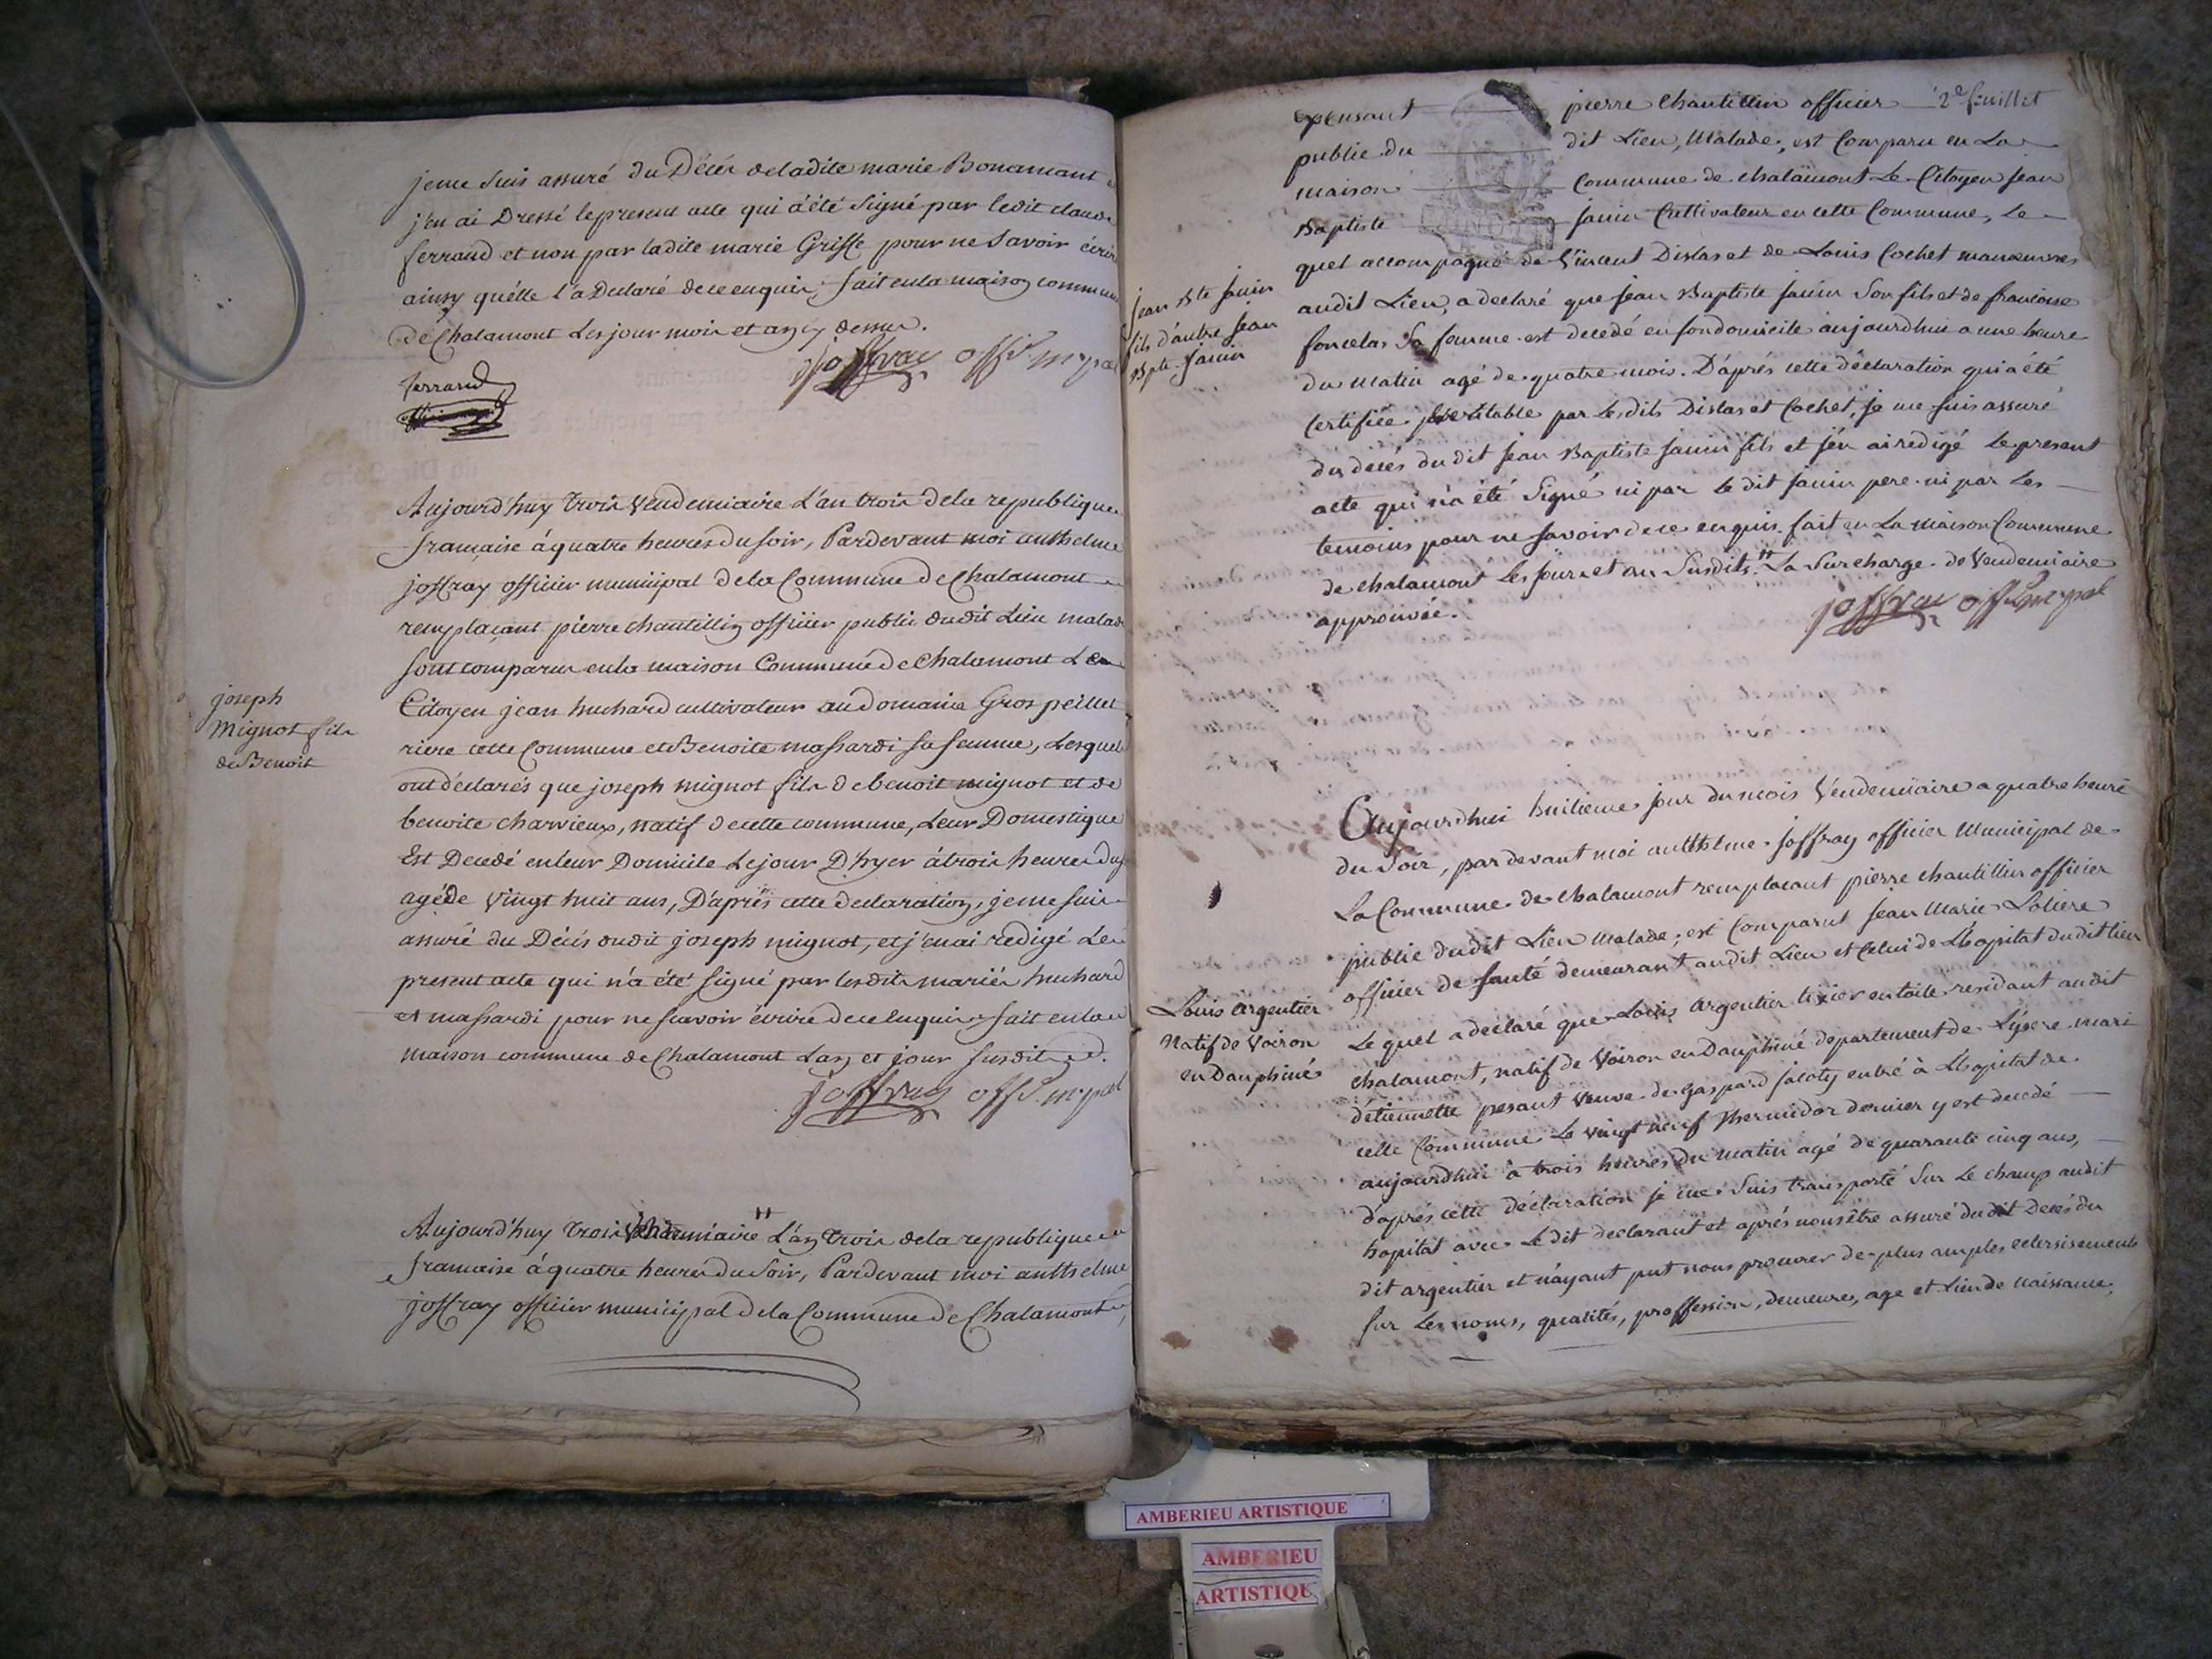 je me suis assuré du Décès de ladite marie Bonamant
j'en ai Dressé le present acte qui a été signé par ledit claude
ferrand et non par ladite marie Griffe pour ne savoir écrire
ainsy qu'elle l'a Declaré de ce enquis, fait en la maison commune
de Chalamont Les jour mois et an cy dessus.
ferrand
joffray offr. mcpal
Aujourd'huy trois Vendemiaire L'an trois de la republique
francaise à quatre heures du soir, Pardevant moi anthelme
joffray officier municipal de la Commune de Chalamont
remplaçant pierre chantillin officier public dudit Lieu malade
sont comparus en la maison Commune de Chalamont Le
Citoyen jean huchard cultivateur au domaine Gros peillet
riere cette Commune et Benoite massardi sa femme, Lesquels
ont déclarés que joseph mignot fils de benoit mignot et de
benoite charvieux, natif de cette commune, Leur Domestique
Est Decedé en leur Domicile Le jour D'hyer à trois heures du
agé de vingt huit ans, D'après cette declaration, je me suis
assuré du Décès dudit joseph mignot, et j'en ai redigé Le
present acte qui n'a été signé par lesdits mariés huchard
et massardi pour ne scavoir écrire de ce enquis fait en la
maison commune de Chalamont L'an et jour susdits.
joffray offr. mcpal
joseph
mignot fils
de Benoit
Aujourd'huy trois Vendemiaire # L'an trois de la republique
francaise à quatre heures du Soir, Pardevant moi anthelme
joffray officier municipal de la Commune de Chalamont
pierre Chantillin officier 2e feuillet
publie du dit Lieu, Malade, est Comparu en La
maison Commune de chalamont Le Citoyen jean
Baptiste janin Cultivateur en cette Commune, Le
quel accompagné de Vincent Dislas et de Louis Cochet manœuvres
audit Lieu, a declaré que jean Baptiste janin son fils et de francoise
foncelas Sa femme est decedé en son domicile aujourdhui a une heure
du matin agé de quatre mois. D'aprés cette déclaration qui a été
Certifiée veritable par Lesdits Dislas et Cochet, je me suis assuré
du decés du dit jean Baptiste janin fils et j'en ai redigé le present
acte qui n'a été Signé ni par le dit janin pere ni par Les
temoins pour ne savoir de ce enquis. fait en La maison Commune
de chalamont les jour et an Susdits. # La Surcharge de Vendemiaire
approuvée.
joffray offr. mcpal
jean Bte janin
fils d'autre jean
Bpte janin
Aujourdhui huitieme jour du mois Vendemiaire a quatre heure
du Soir, par devant moi anthelme joffray officier Municipal de
La Commune de chalamont remplacant pierre chantillin officier
public dudit Lieu malade; est Comparut jean Marie Loliere
officier de santé demeurant audit Lieu et Celui de Lhopital dudit lieu
Le quel a déclaré que Louis argentier tixier en toile residant audit
chalamont, natif de Voiron en Dauphiné departement de Lysere mari
d'étiennette pesant veuve de gaspard jaloty entré à Lhopital de
cette Commune Le vingt neuf thermidor dernier y est decedé
aujourdhui à trois heures du matin agé de quarante cinq ans,
d'aprés cette déclaration je me suis transporté Sur Le champ audit
hopital avec Le dit declarant et aprés nous être assuré dudit Decés du
dit argentier et n'ayant put nous procurer de plus amples eclersisements
Sur Les noms, qualités, proffession, demeure, age et Lieu de naissance,
Louis argentier
Natif de Voiron
en Dauphiné
AMBERIEU ARTISTIQUE
AMBERIEU
ARTISTIQU